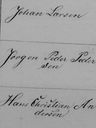 Johan Larsen
Jørgen Peder Peder
sen
Hans Christian An
dersen